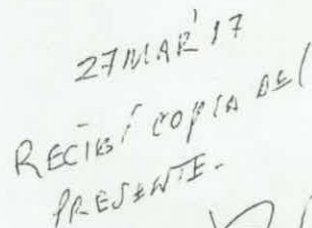 27 MAR '17
RECIBÍ COPIA DEL
PRESENTE.